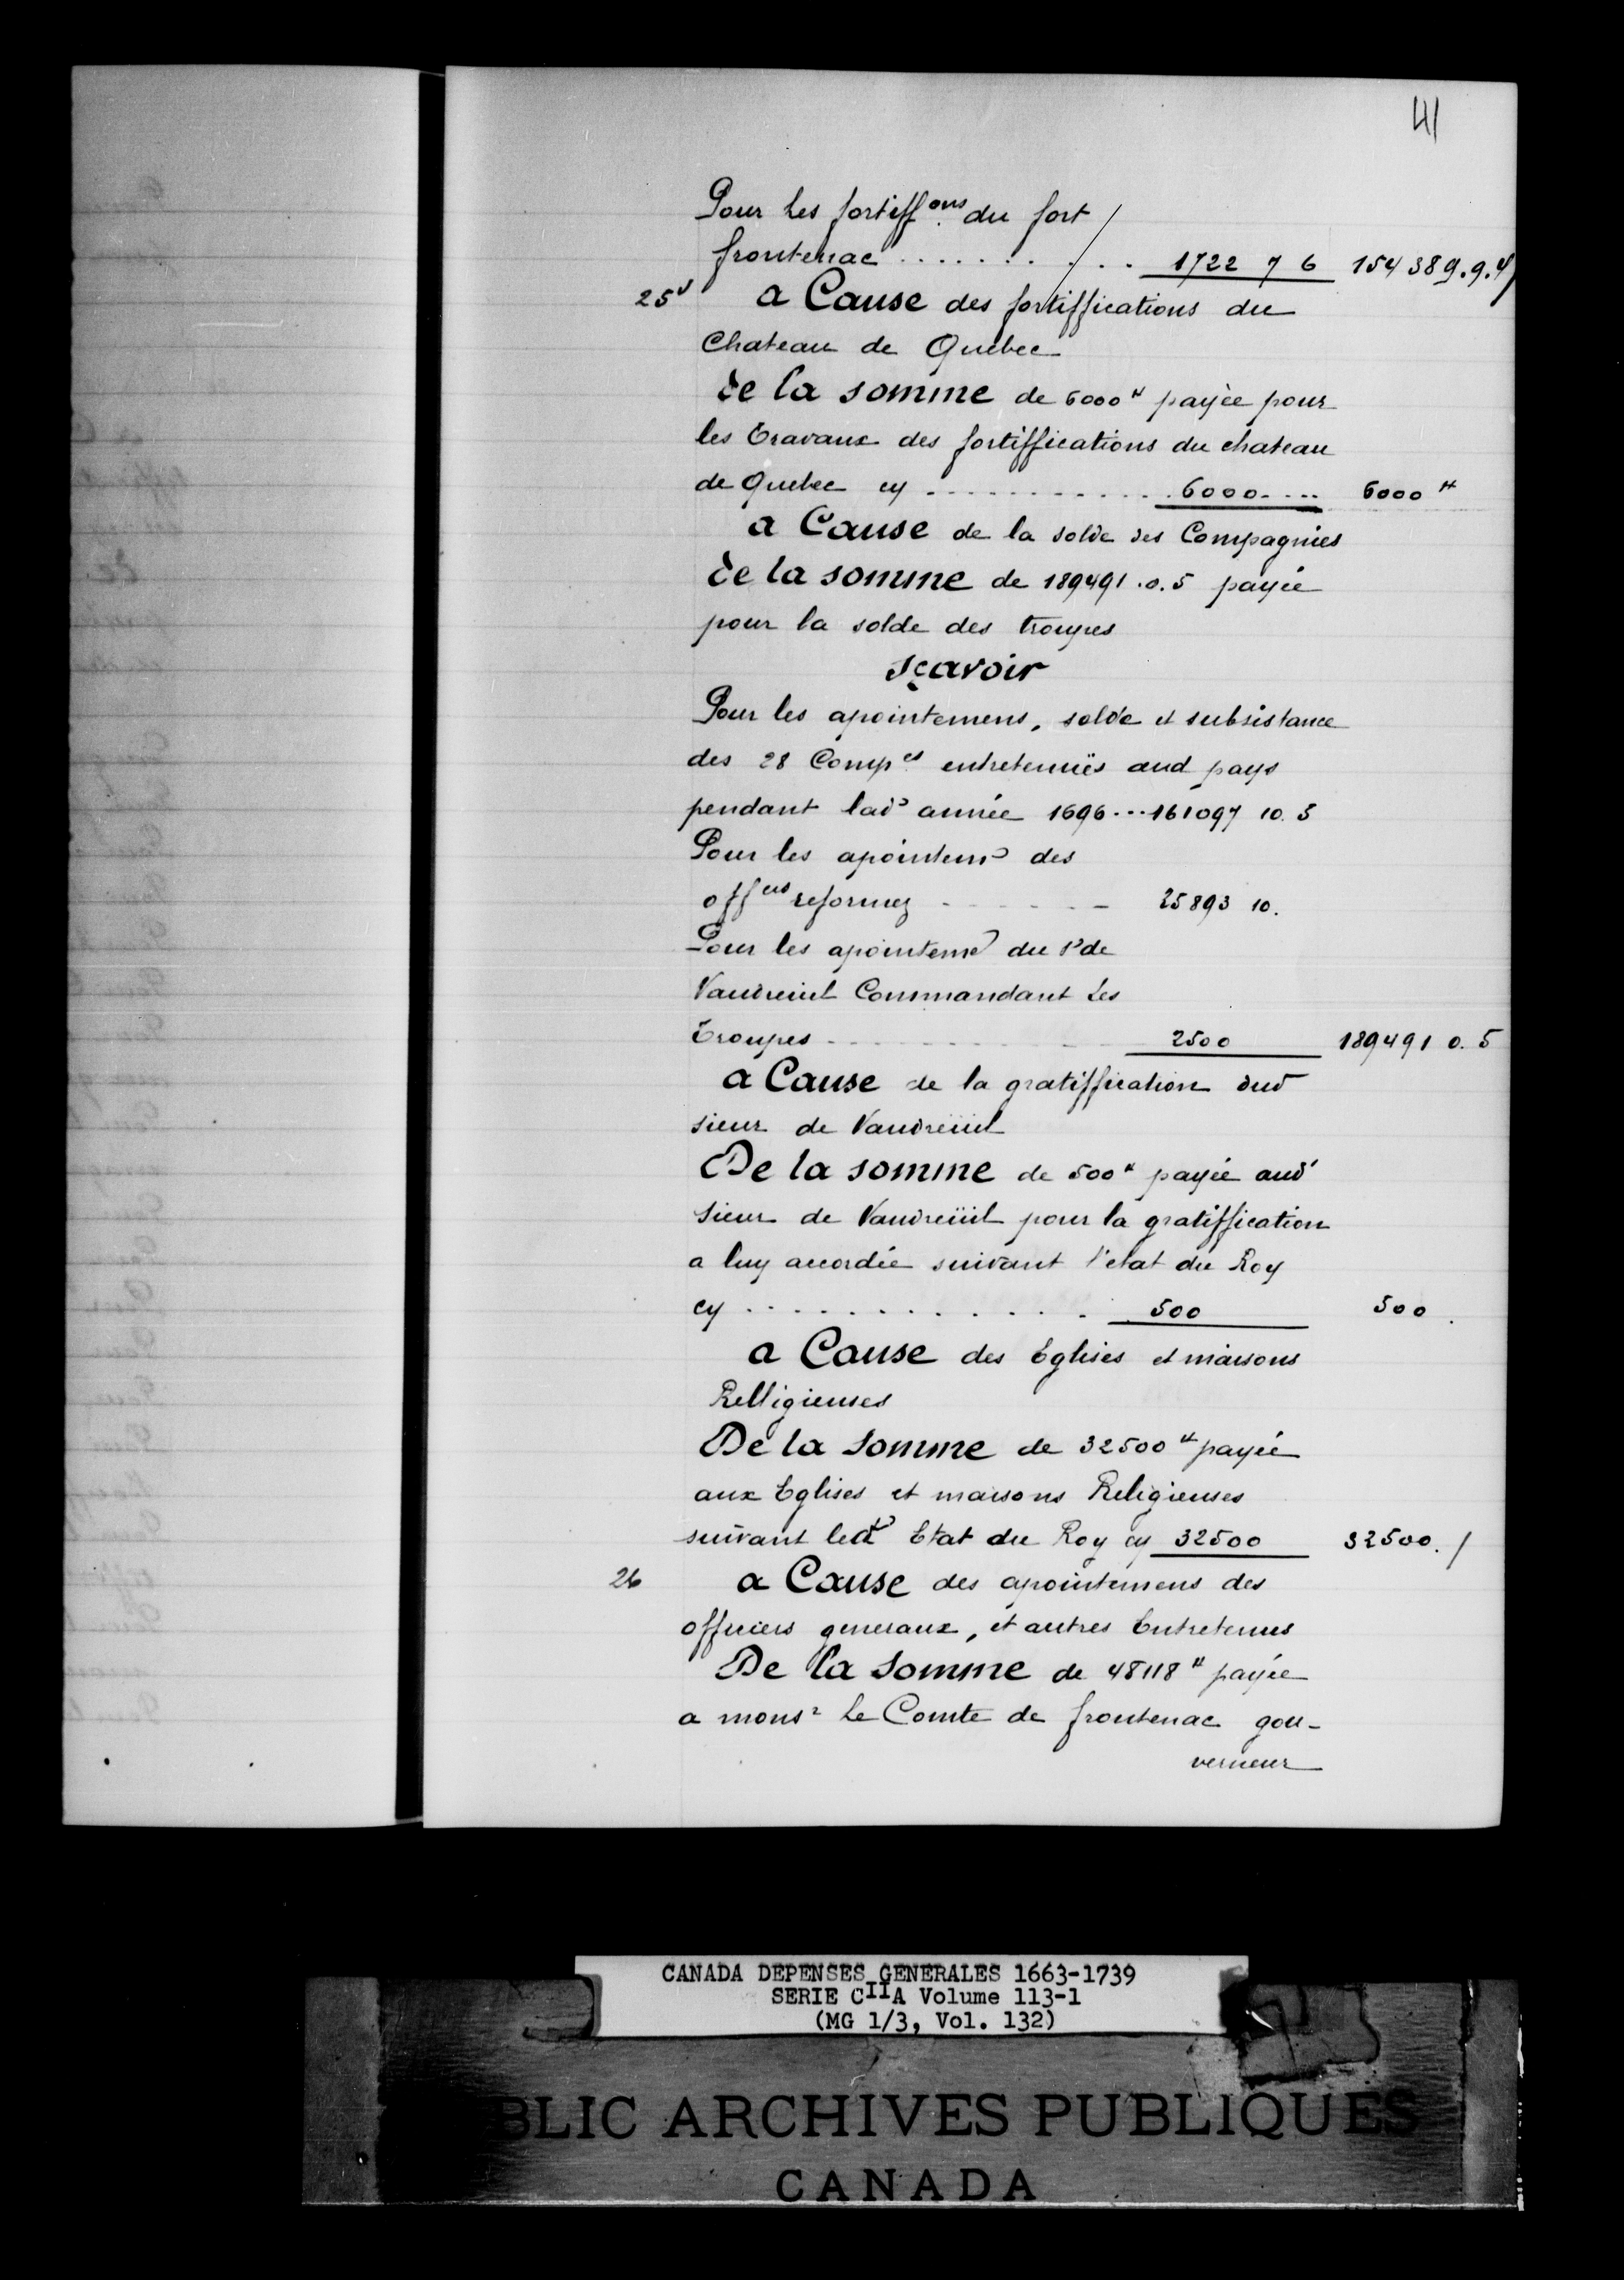 41
Pour les fortiff.ons du fort
frontenac ........... 1722 7 6 154389.9.4
25v a Cause des fortiffications du
Chateau de Quebec
de la somme de 6000# payée pour
les travaux des fortiffications du chateau
de Quebec cy ............ 6000.... 6000#
a Cause de la solde des Compagnies
de la somme de 189491.0.5 payée
pour la solde des troupes
sçavoir
Pour les apointemens, solde et subsistance
des 28 Comp.es entretenuës aud pays
pendant lad.e année 1696...161097 10.5
Pour les apointem.s des
off.ers reformez - - - - - - 25893 10.
Pour les apointem.s du s.r de
Vaudreuil Commandant les
troupes - - - - - - - - 2500 189491 0.5
a Cause de la gratiffication dud
sieur de Vaudreüil
De la somme de 500# payée aud
sieur de Vaudreüil pour la gratiffication
a luy accordée suivant l'etat du Roy
cy ............. 500 500.
a Cause des Eglises et maisons
Relligieuses
De la somme de 32500# payée
aux Eglises et maisons Religieuses
suivant led.t Etat du Roy cy 32500 32500./
26 a Cause des apointemens des
officiers generaux, et autres Entretenus
De la somme de 48118# payée
a mons.r le Comte de frontenac gou-
verneur
CANADA DEPENSES GENERALES 1663-1739
SERIE CIIA Volume 113-1
(MG 1/3, Vol. 132)
BLIC ARCHIVES PUBLIQUES
CANADA